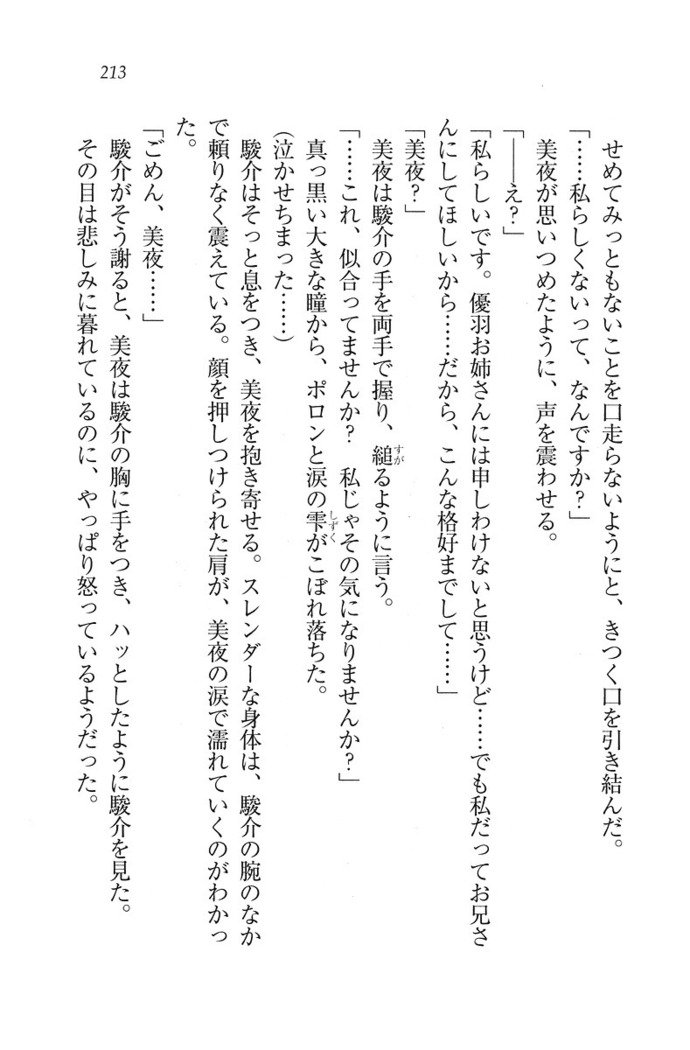 213
せめてみっともないことを口走らないようにと、きつく口を引き結んだ。
「……私らしくないって、なんですか？」
美夜が思いつめたように、声を震わせる。
「――え？」
「私らしいです。優羽お姉さんには申しわけないと思うけど……でも私だってお兄さ
んにしてほしいから……だから、こんな格好までして……」
「美夜？」
美夜は駿介の手を両手で握り、縋るように言う。
「……これ、似合ってませんか？　私じゃその気になりませんか？」
真っ黒い大きな瞳から、ポロンと涙の雫がこぼれ落ちた。
(泣かせちまった……)
駿介はそっと息をつき、美夜を抱き寄せる。スレンダーな身体は、駿介の腕のなか
で頼りなく震えている。顔を押しつけられた肩が、美夜の涙で濡れていくのがわかっ
た。
「ごめん、美夜……」
駿介がそう謝ると、美夜は駿介の胸に手をつき、ハッとしたように駿介を見た。
その目は悲しみに暮れているのに、やっぱり怒っているようだった。